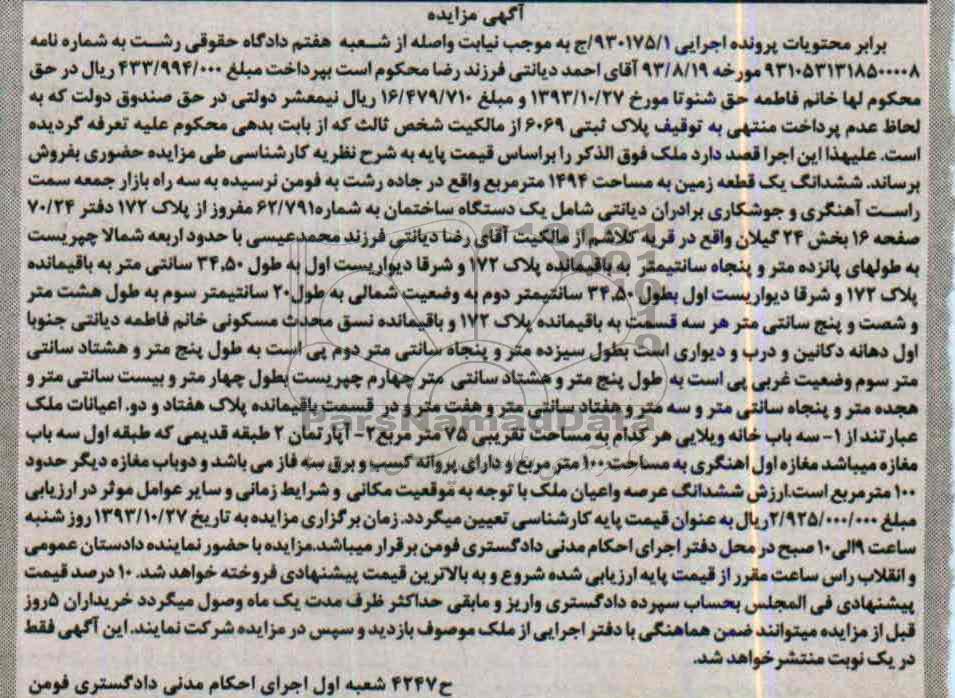 آگهی مزایده
برابر محتویات پرونده اجرایی ۹۳۰۱۷۵/۱/ج به موجب نیابت واصله از شعبه هفتم دادگاه حقوقی رشت به شماره نامه
۹۳۱۰۵۳۱۳۱۸۵۰۰۰۰۸ مورخه ۹۳/۸/۱۹ آقای احمد دیانتی فرزند رضا محکوم است بپرداخت مبلغ ۴۳۳/۹۹۴/۰۰۰ ریال در حق
محکوم لها خانم فاطمه حق شنوتا مورخ ۱۳۹۳/۱۰/۲۷ و مبلغ ۱۶/۴۷۹/۷۱۰ ریال نیمعشر دولتی در حق صندوق دولت که به
لحاظ عدم پرداخت منتهی به توقیف پلاک ثبتی ۶۰۶۹ از مالکیت شخص ثالث که از بابت بدهی محکوم علیه تعرفه گردیده
است. علیهذا این اجرا قصد دارد ملک فوق الذکر را براساس قیمت پایه به شرح نظریه کارشناسی طی مزایده حضوری بفروش
برساند. ششدانگ یک قطعه زمین به مساحت ۱۴۹۴ مترمربع واقع در جاده رشت به فومن نرسیده به سه راه بازار جمعه سمت
راست آهنگری و جوشکاری برادران دیانتی شامل یک دستگاه ساختمان به شماره۶۲/۷۹۱ مفروز از پلاک ۱۷۲ دفتر ۷۰/۲۴
صفحه ۱۶ بخش ۲۴ گیلان واقع در قریه کلاشم از مالکیت آقای رضا دیانتی فرزند محمدعیسی با حدود اربعه شمالا چپریست
به طولهای پانزده متر و پنجاه سانتیمتر به باقیمانده پلاک ۱۷۲ و شرقا دیواریست اول به طول ۳۴,۵۰ سانتی متر به باقیمانده
پلاک ۱۷۲ و شرقا دیواریست اول بطول ۳۴,۵۰ سانتیمتر دوم به وضعیت شمالی به طول۲۰ سانتیمتر سوم به طول هشت متر
و شصت و پنج سانتی متر هر سه قسمت به باقیمانده پلاک ۱۷۲ و باقیمانده نسق محدث مسکونی خانم فاطمه دیانتی جنوبا
اول دهانه دکانین و درب و دیواری است بطول سیزده متر و پنجاه سانتی متر دوم پی است به طول پنج متر و هشتاد سانتی
متر سوم وضعیت غربی پی است به طول پنج متر و هشتاد سانتی متر چهارم چپریست بطول چهار متر و بیست سانتی متر و
هجده متر و پنجاه سانتی متر و سه متر و هفتاد سانتی متر و هفت متر و در قسمت باقیمانده پلاک هفتاد و دو. اعیانات ملک
عبارتند از ۱- سه باب خانه ویلایی هر کدام به مساحت تقریبی ۷۵ متر مربع ۲- آپارتمان ۲ طبقه قدیمی که طبقه اول سه باب
مغازه میباشد مغازه اول اهنگری به مساحت ۱۰۰ متر مربع و دارای پروانه کسب و برق سه فاز می باشد و دوباب مغازه دیگر حدود
۱۰۰ مترمربع است.ارزش ششدانگ عرصه واعیان ملک با توجه به موقعیت مکانی و شرایط زمانی و سایر عوامل موثر در ارزیابی
مبلغ ۲/۹۲۵/۰۰۰/۰۰۰ریال به عنوان قیمت پایه کارشناسی تعیین میگردد. زمان برگزاری مزایده به تاریخ ۱۳۹۳/۱۰/۲۷ روز شنبه
ساعت ۹الی۱۰ صبح در محل دفتر اجرای احکام مدنی دادگستری فومن برقرار میباشد.مزایده با حضور نماینده دادستان عمومی
و انقلاب راس ساعت مقرر از قیمت پایه ارزیابی شده شروع و به بالاترین قیمت پیشنهادی فروخته خواهد شد. ۱۰ درصد قیمت
پیشنهادی فی المجلس بحساب سپرده دادگستری واریز و مابقی حداکثر ظرف مدت یک ماه وصول میگردد خریداران ۵روز
قبل از مزایده میتوانند ضمن هماهنگی با دفتر اجرایی از ملک موصوف بازدید و سپس در مزایده شرکت نمایند. این آگهی فقط
در یک نوبت منتشر خواهد شد.
ح۴۲۴۷ شعبه اول اجرای احکام مدنی دادگستری فومن
ParsNamadData